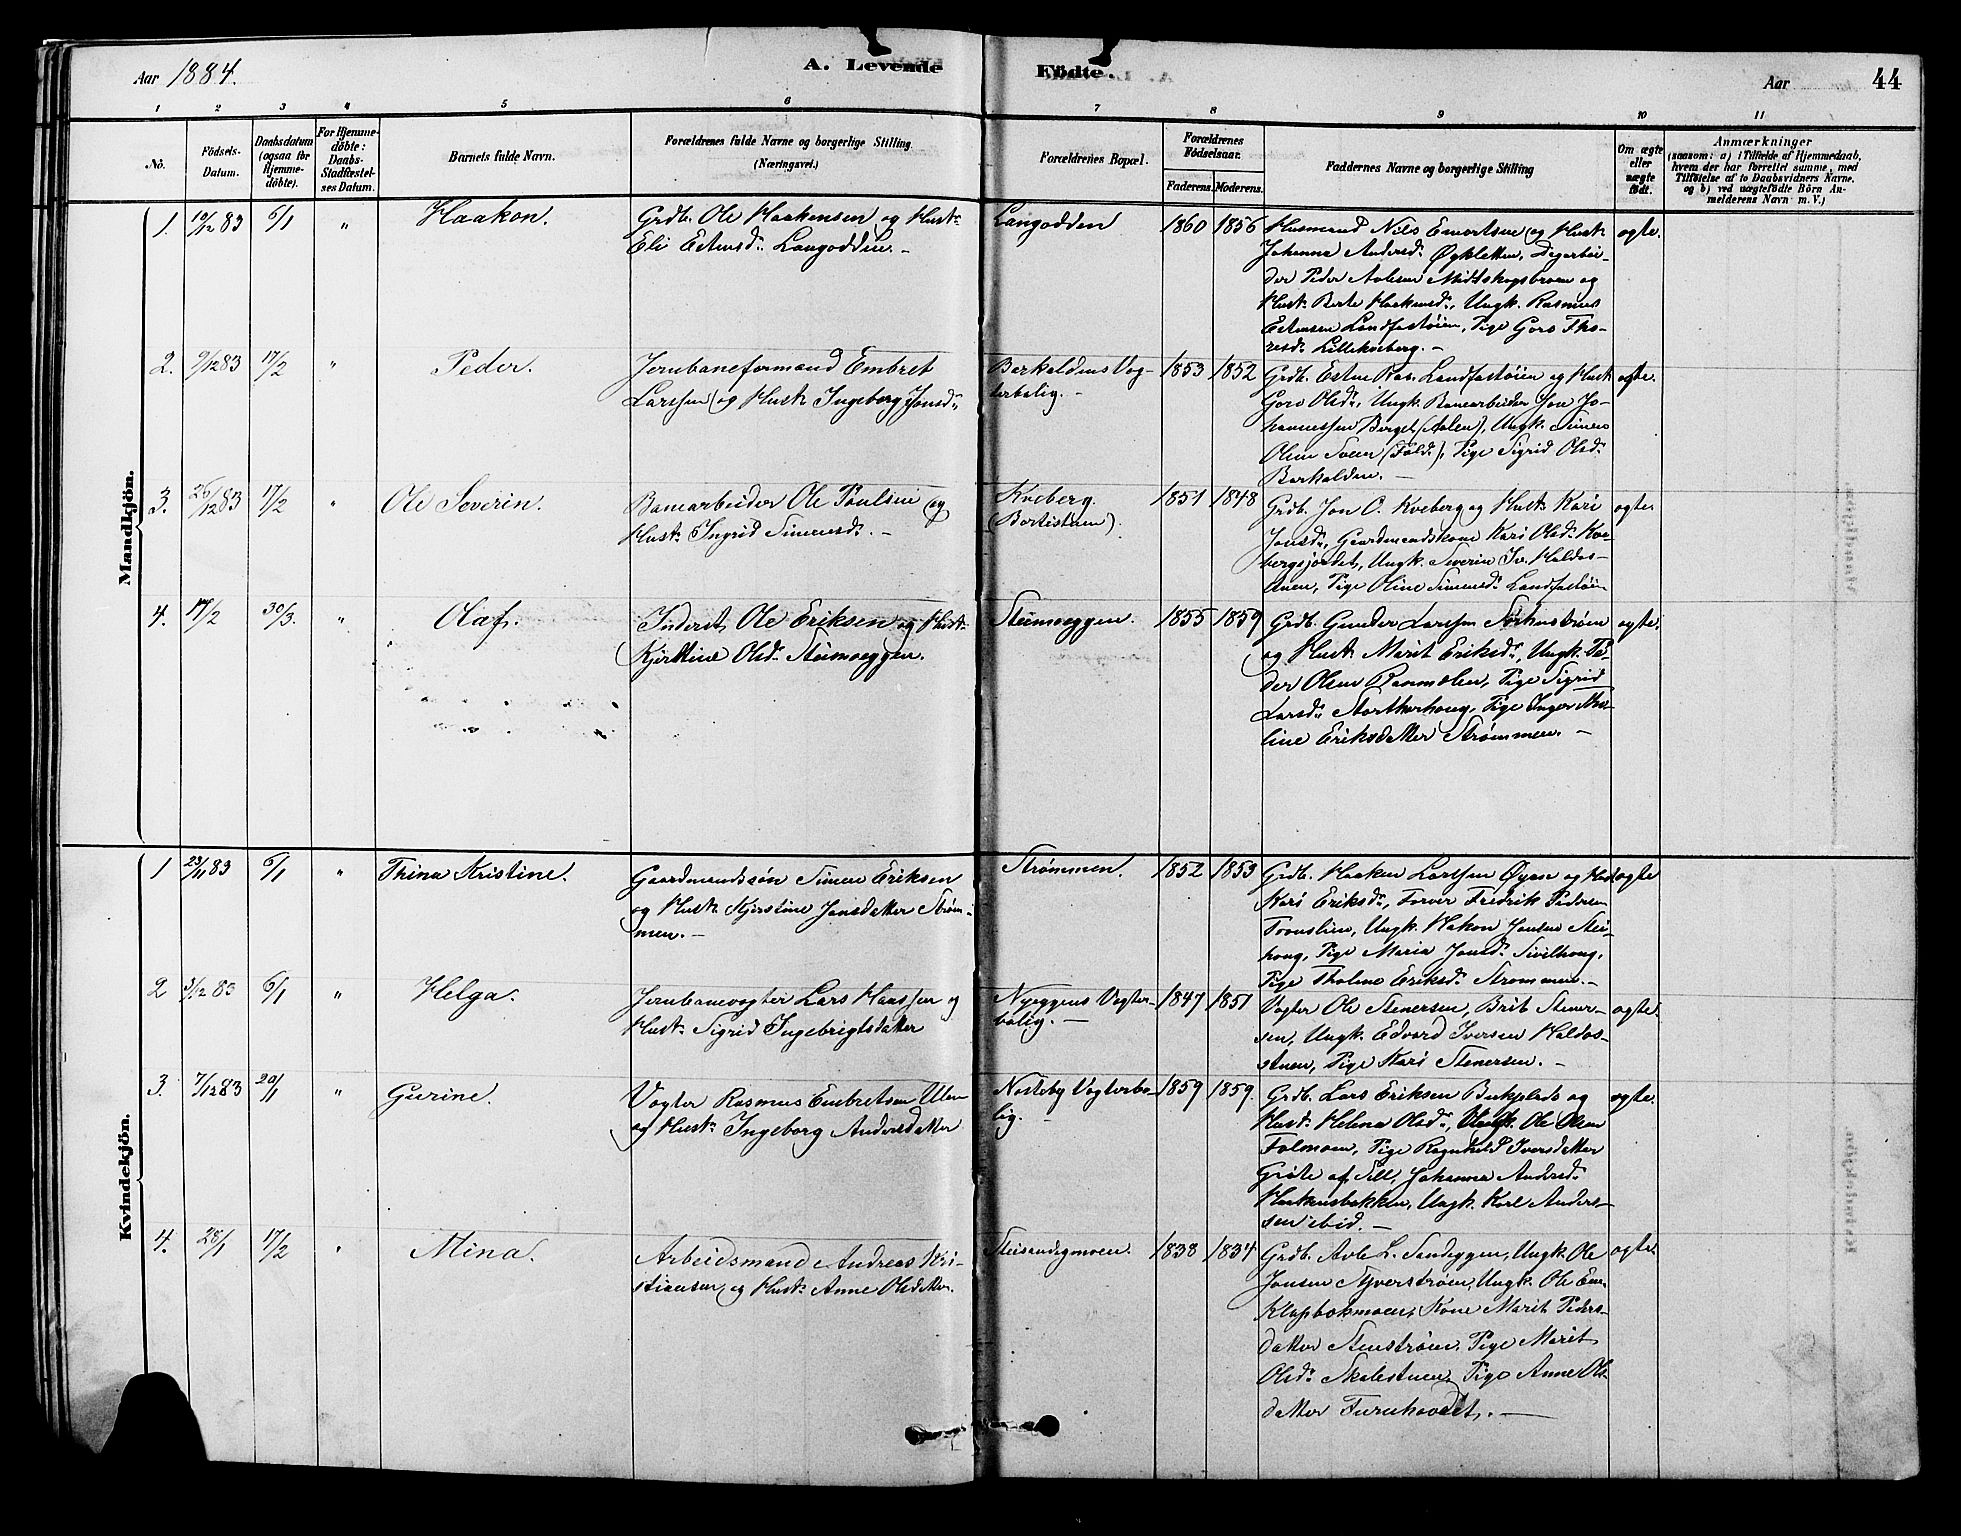 Aar 1884.
A. Levende Fødte.
Aar
44
1 2 3 4 5 6 7 8 9 10 11
No.
Födsels-
Datum.
Daabsdatum
(ogsaa for
Hjemme-
döbte).
For Hjemme-
döbte:
Daabs-
Stadfæstel-
ses Datum.
Barnets fulde Navn.
Forældrenes fulde Navne og borgerlige Stilling
(Næringsvei.)
Forældrenes Bopæl.
Forældrenes
Födselsaar.
Faderens. Moderens.
Faddernes Navne og borgerlige Stilling
Om ægte
eller
uægte
født.
Anmærkninger
(saasom: a) i Tilfælde af Hjemmedaab,
hvem der har forrettet samme, med
Tilföielse af to Daabsvidners Navne.
og b) ved uægtefödte Börn An-
melderens Navn m. V.)
Mandkjön.
1. 10/12 83 6/1 " Haakon.
Grdb. Ole Haakensen og Hustr.
Eli Estensd. Langodden. -
Langodden 1860 1856
Husmand Nils Emortsen og Hustr.
Johanna Andersd. Øykletten, Digarbei-
der Peder Aolesen Midtskogsbroen og
Hustr. Berte Haakensd., Ungk. Rasmus
Estensen Landfastøien, Pige Goro Tho-
resd. Lillekveberg. -
ægte.
2. 9/12 83 17/2 " Peder.
Jernbaneformand Embret
Larssen og Hustr. Ingeborg Jonsd.
Barkaldens Vog-
terbolig. -
1853 1852
Grdb. Esten Ras. Landfastøien og Hustr.
Goro Olsd., Ungk. Banearbeider Jon Jo-
hannessen Berget (Aalen), Ungk. Simen
Olsen Sveen (Fold.), Pige Sigrid Olsd.
Barkalden. -
ægte.
3. 26/12 83 17/2 " Ole Severin.
Banearbeider Ole Poulsen og
Hustr. Ingrid Simensd. -
Kveberg.
1851 1848
Grdb. Jon O. Kveberg og Hustr. Kari
Jonsd., Gaardmandskone Kari Olsd. Kve-
bergsjordet, Ungk. Severin Iv. Haldos-
stuen, Pige Oline Simensd. Landfastøien
ægte
4. 17/2 30/3. " Olaf.
Inderst Ole Eriksen og Hustr.
Kjerstine Olsd. Steimoeggen.
Steimoeggen. 1855 1859
Grdb. Gunder Larssen Sørhusstrøen
og Hustr. Marit Eriksd., Ungk. Pe-
der Olsen Banmolen, Pige Sigrid
Larsd. Storthorhoug, Pige Inger Tho-
line Eriksdatter Strømmen. -
ægte.
Kvindekjön.
1 23/11 83 6/1 " Thina Kristine.
Gaardmandssøn Simen Eriksen
og Hustr. Kjerstine Jonsdatter Strøm-
men. -
Strømmen. 1852 1853
Grdb. Haaken Larssen Øyan og Hustr.
Kari Eriksd., Forver Fredrik Pedersen
Tronslien, Ungk. Hakon Jonsen Stei-
houg, Pige Maria Jonsd. Sivilhoug,
Pige Tholine Eriksd. Strømmen. -
ægte
2 3/12 83 6/1 " Helga.
Jernbanevogter Lars Haassen og
Hustr. Sigrid Ingebrigtsdatter
Nyeggens Vogter-
bolig. -
1847 1851
Vogter Ole Stenersen, Brit Stener-
sen, Ungk. Edvard Iversen Haldos-
stuen, Pige Kari Stenersen. -
ægte.
3. 7/12 83 20/1 " Gurine.
Vogter Rasmus Embretsen Ulen
og Hustr. Ingeborg Andersdatter
Nesteby Vogterbo-
lig. -
1859 1859.
Grdb. Lars Eriksen Bækplads og
Hustr. Helena Olsd., Ungk. Ole Olsen
Folmoen, Pige Ragnhild Iversdatter
Grøte af Sell, Johanna Andersd.
Haakensbakken, Ungk. Karl Anders-
sen ibid. -
ægte.
4. 28/1 17/2 " Mina.
Arbeidsmand Andreas Kri-
stiansen og Hustr. Anne Olsdatter.
Steisandegmoen. 1838 1834
Grdb. Avle L. Sandeggen, Ungk. Ole
Jonsen Nyverstrøen, Ungk. Ole Em.
Klapbokmoen, Kone Marit Peders-
datter Stenstrøen. Pige Marit
Olsd. Skolestuen, Pige Anne Ols-
datter Furuhovdet. -
ægte.